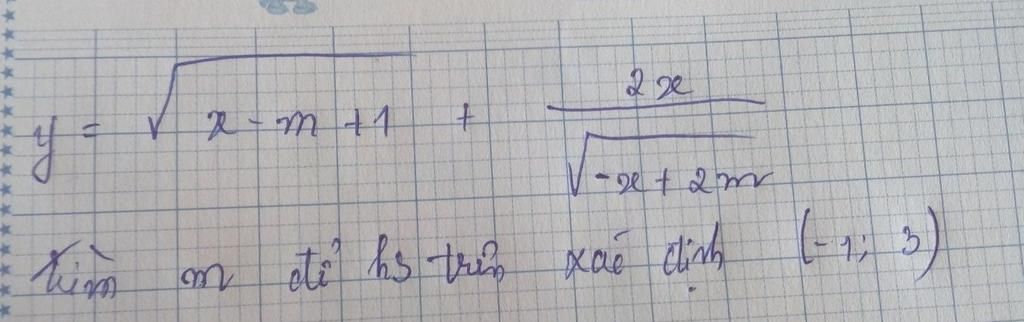 y = √(x - m + 1) + 2x / √(-x + 2m)
tìm m để hs trên xác định (-1; 3)